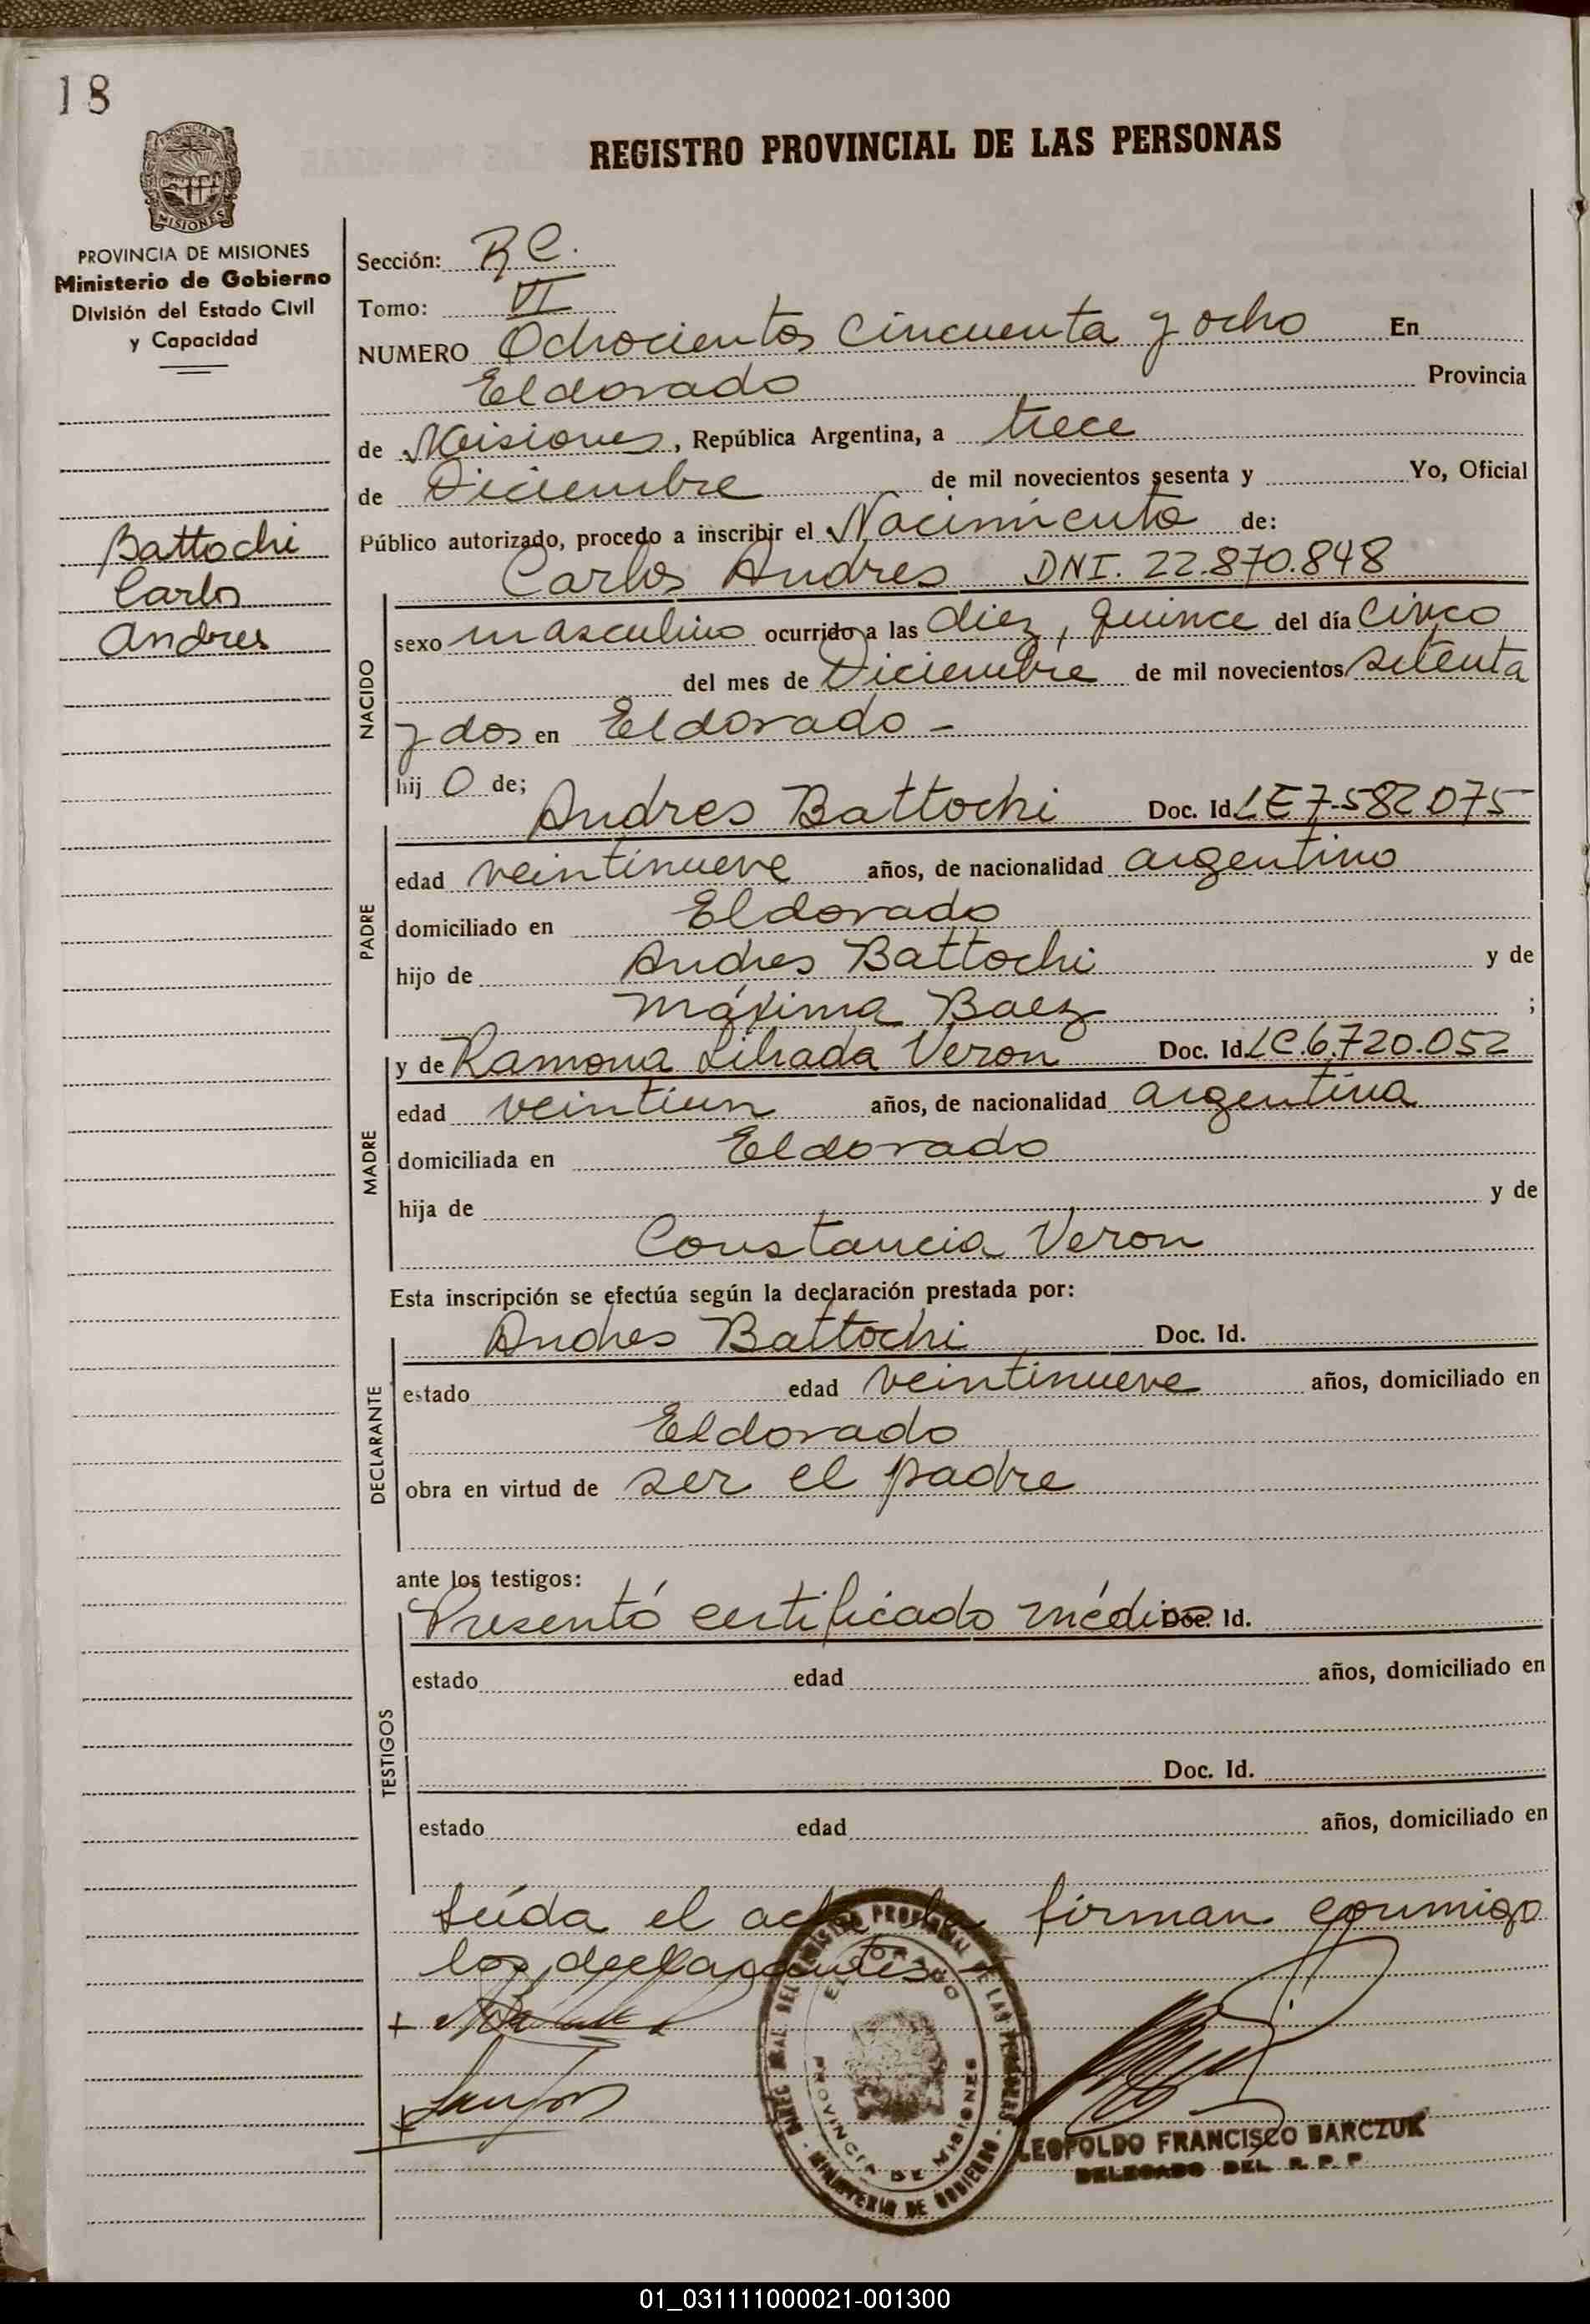 18
PROVINCIA DE
MISIONES
PROVINCIA DE MISIONES
Ministerio de Gobierno
División del Estado Civil
y Capacidad
Battochi
Carlos
Andres
REGISTRO PROVINCIAL DE LAS PERSONAS
Sección: R C.
Tomo: VI
NUMERO Ochocientos Cincuenta y ocho En
Eldorado Provincia
de Misiones, República Argentina, a trece
de Diciembre de mil novecientos sesenta y Yo, Oficial
Público autorizado, procedo a inscribir el Nacimiento de:
Carlos Andres DNI. 22.870.848
NACIDO
sexo masculino ocurrido a las diez, quince del día Cinco
del mes de Diciembre de mil novecientos setenta
y dos en Eldorado -
hij o de;
PADRE
Andres Battochi Doc. Id. LE 7.582.075
edad veintinueve años, de nacionalidad argentino
domiciliado en Eldorado
hijo de Andres Battochi y de
Máxima Baez ;
MADRE
y de Ramona Librada Veron Doc. Id. LC.6.720.052
edad veintiun años, de nacionalidad argentina
domiciliada en Eldorado
hija de y de
Constancia Veron
Esta inscripción se efectúa según la declaración prestada por:
DECLARANTE
Andres Battochi Doc. Id.
estado edad veintinueve años, domiciliado en
Eldorado
obra en virtud de ser el padre
ante los testigos:
TESTIGOS
Presentó certificado médico Doc. Id.
estado edad años, domiciliado en
Doc. Id.
estado edad años, domiciliado en
Leída el acta la firman conmigo
los declarantes
REGISTRO PROVINCIAL DE LAS PERSONAS
ELDORADO
PROVINCIA DE MISIONES
MINISTERIO DE GOBIERNO
LEOPOLDO FRANCISCO BARCZUK
DELEGADO DEL R. P. P.
01_031111000021-001300